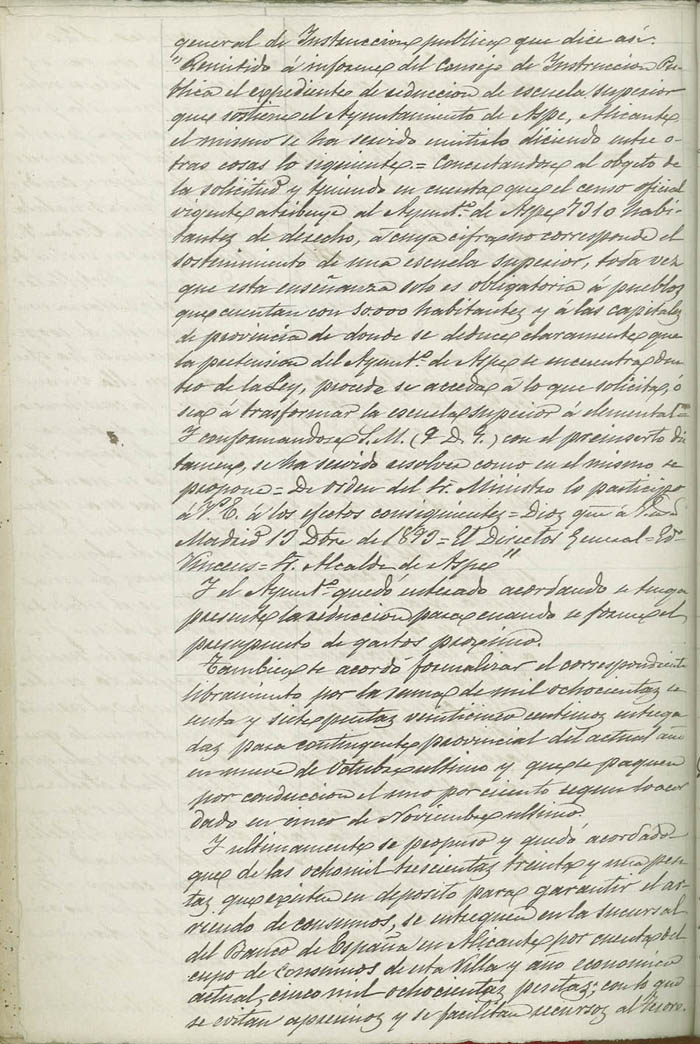 general de Instruccion publica que dice asi:
"Remitido á informe del Consejo de Instruccion Pú-
blica el expediente de reduccion de escuela superior
que sostiene el Ayuntamiento de Aspe, Alicante
el mismo se ha servido emitirlo diciendo entre o-
tras cosas lo siguiente = Concretandose al objeto de
la solicitud y teniendo en cuenta que el censo oficial
vigente atribuye al Ayunt.º de Aspe 7310 habi-
tantes de derecho, á cuya cifra no corresponde el
sostenimiento de una escuela superior, toda vez
que esta enseñanza solo es obligatoria á pueblos
que cuentan con 10.000 habitantes y á las capitales
de provincia de donde se deduce claramente que
la pretension del Ayunt.º de Aspe se encuentra den-
tro de la Ley, procede se acceda á lo que solicita, ó
sea á trasformar la escuela superior á elemental =
Y conformandose S.M. (q. D. g.) con el preinserto dic-
tamen, se ha servido resolver como en el mismo se
propone = De orden del Sr. Ministro lo participo
á V. E. á los efectos consiguientes = Dios gue á V.
Madrid 13 Dbre de 1893 = El Director General = Ed.º
Vincenti = Sr. Alcalde de Aspe"
Y el Ayunt.º quedó enterado acordando se tenga
presente la reduccion para cuando se forme el
presupuesto de gastos proximo.
Tambien se acordó formalizar el correspondiente
libramiento por la suma de mil ochocientas se
enta y siete pesetas veinticinco centimos entrega
das para contingente provincial del actual año
en nueve de Octubre ultimo y que se paguen
por conduccion el uno por ciento segun lo acor
dado en cinco de Noviembre ultimo.
Y ultimamente se propuso y quedó acordado
que de las ocho mil trescientas treinta y una pese
tas que existen en deposito para garantir el ar
riendo de consumos, se entreguen en la sucursal
del Banco de España en Alicante por cuenta del
cupo de Consumos de esta Villa y año economico
actual, cinco mil ochocientas pesetas; con lo que
se evitan apremios y se facilitan recursos al Tesoro.